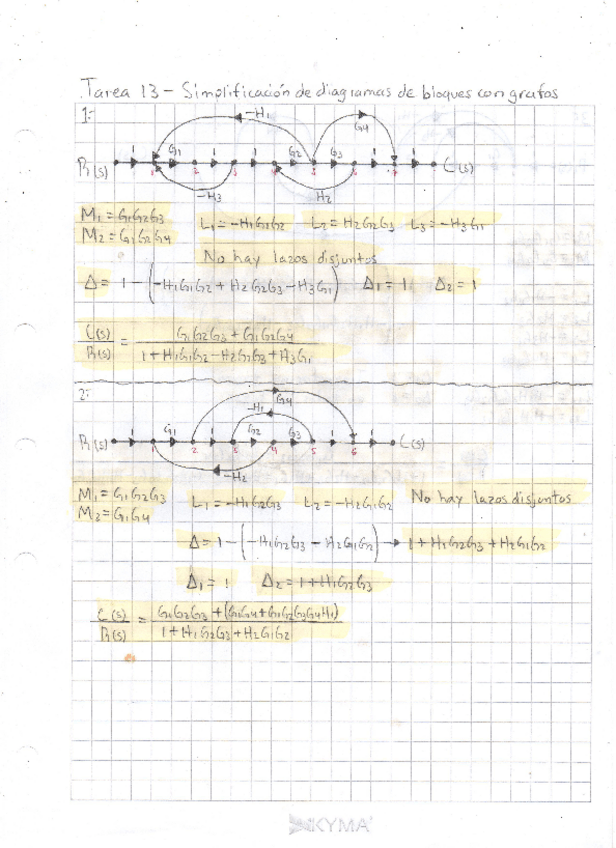 Tarea 13 - Simplificación de diagramas de bloques con grafos
1:
-H1
G4
1 G1 1 1 G2 G3 1 1
R(s) 1 2 3 4 5 6 7 C(s)
-H3 H2
M1 = G1G2G3
M2 = G1G2G4
L1 = -H1G1G2 L2 = H2G2G3 L3 = -H3G1
No hay lazos disjuntos
Δ = 1 - (-H1G1G2 + H2G2G3 - H3G1) Δ1 = 1 Δ2 = 1
C(s)/R(s) = G1G2G3 + G1G2G4 / 1 + H1G1G2 - H2G2G3 + H3G1
2:
G4
-H1
1 G1 1 G2 G3 1 1
R(s) 1 2 3 4 5 6 C(s)
-H2
M1 = G1G2G3
M2 = G1G4
L1 = -H1G2G3 L2 = -H2G1G2 No hay lazos disjuntos
Δ = 1 - (-H1G2G3 - H2G1G2) → 1 + H1G2G3 + H2G1G2
Δ1 = 1 Δ2 = 1 + H1G2G3
C(s)/R(s) = G1G2G3 + (G1G4 + G1G2G3G4H1) / 1 + H1G2G3 + H2G1G2
KYMA